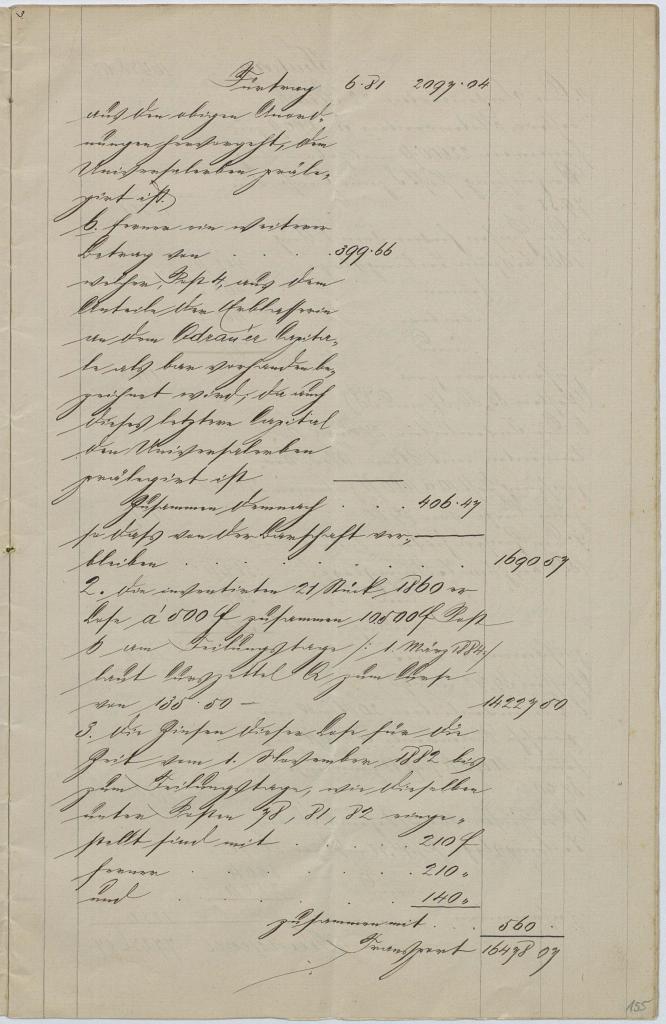 3
Fürtrag 6·81 2097·04
aus den obigen Anord-
nungen hervorgeht, dem
Universalerben präle-
girt ist.)
b. ferner ein weiterer
Betrag von . . . . 399·66
welcher, Post 4, aus dem
Anteile der Erblasserin
an dem Odrauer Capita-
le als bar vorhanden be-
zeichnet wird, da auch
dieses letztere Capital
dem Universalerben
prälegirt ist
Zusammen demnach . . . 406·47
so daß von der Barschaft ver-
bleiben . . . . . . . 1690 57
2. Die inventirten 21 Stück 1860 er
Lose á 500 f zusammen 10500 f Post
6 am Teilungstage /: 1. März 1884 :/
laut Curszettel A zum Curse
von 135·50 — 14227 50
3. Die Zinsen dieser Lose für die
Zeit vom 1. November 1882 bis
zum Teilungstage, wie dieselben
unter Posten 78, 81, 82 einge-
stellt sind mit . . . . 210 f
ferner . . . . . . 210 "
und . . . . . . 140 "
zusammen mit . . 560 ·
Transport 16478 07
155